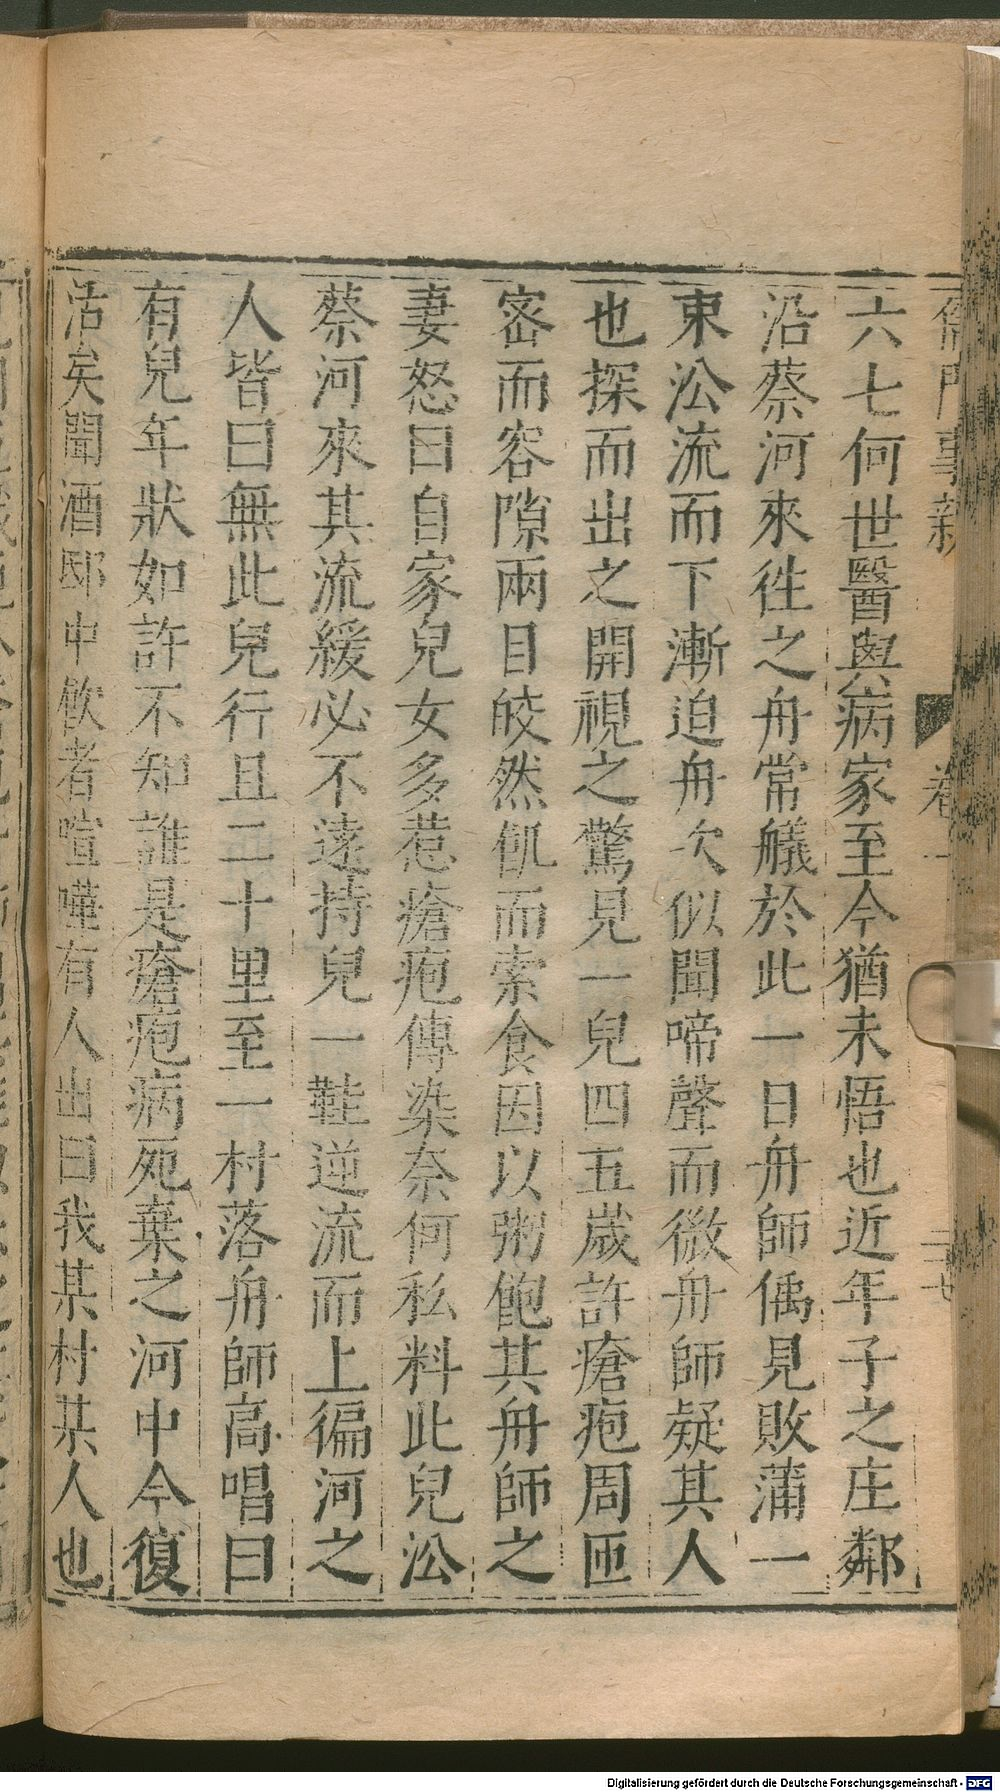 儒門事親 卷一 二十七
六七何世醫與病家至今猶未悟也近年子之庄鄰
沿蔡河來徃之舟常艤於此一日舟師偶見敗蒲一
束㳂流而下漸迫舟次似聞啼聲而微舟師疑其人
也探而出之開視之驚見一兒四五嵗許瘡疱周匝
宻而容隙兩目皎然飢而索食因以粥飽其舟師之
妻怒曰自家兒女多惹瘡疱傳染奈何私料此兒㳂
蔡河來其流緩必不遠持兒一鞋逆流而上徧河之
人皆曰無此兒行且二十里至一村落舟師高唱曰
有兒年狀如許不知誰是瘡疱病死棄之河中今復
活矣聞酒邸中飲者喧嘩有人出曰我某村某人也
Digitalisierung gefördert durch die Deutsche Forschungsgemeinschaft - DFG